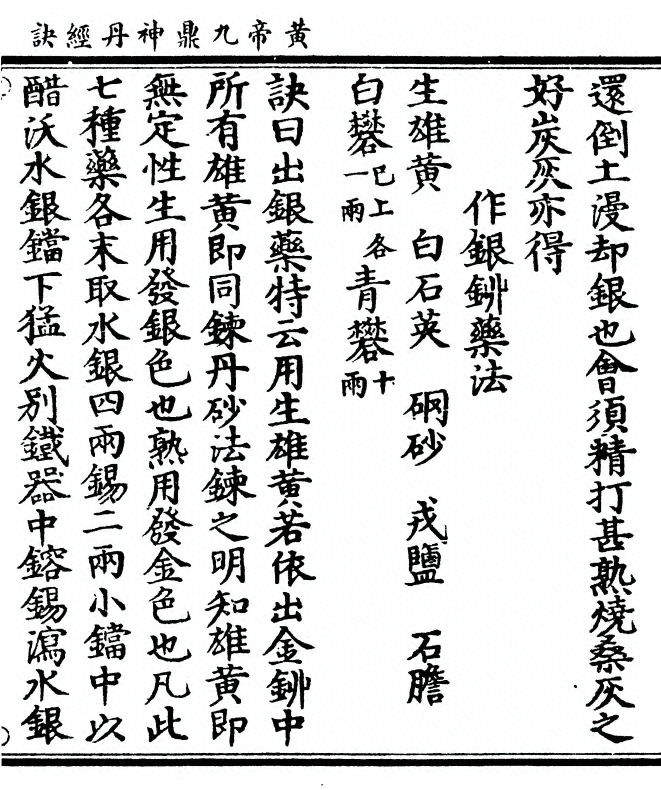 黃帝九鼎神丹經訣
還倒土漫却銀也會須精打甚熟燒桑灰之
好炭灰亦得
作銀釧藥法
生雄黃 白石英 硇砂 戎鹽 石膽
白礬一兩已上各 青礬十兩
訣曰出銀藥特云用生雄黃若依出金釧中
所有雄黃即同鍊丹砂法鍊之明知雄黃即
無定性生用發銀色也熟用發金色也凡此
七種藥各末取水銀四兩錫二兩小鐺中以
醋沃水銀鐺下猛火別鐵器中鎔錫瀉水銀